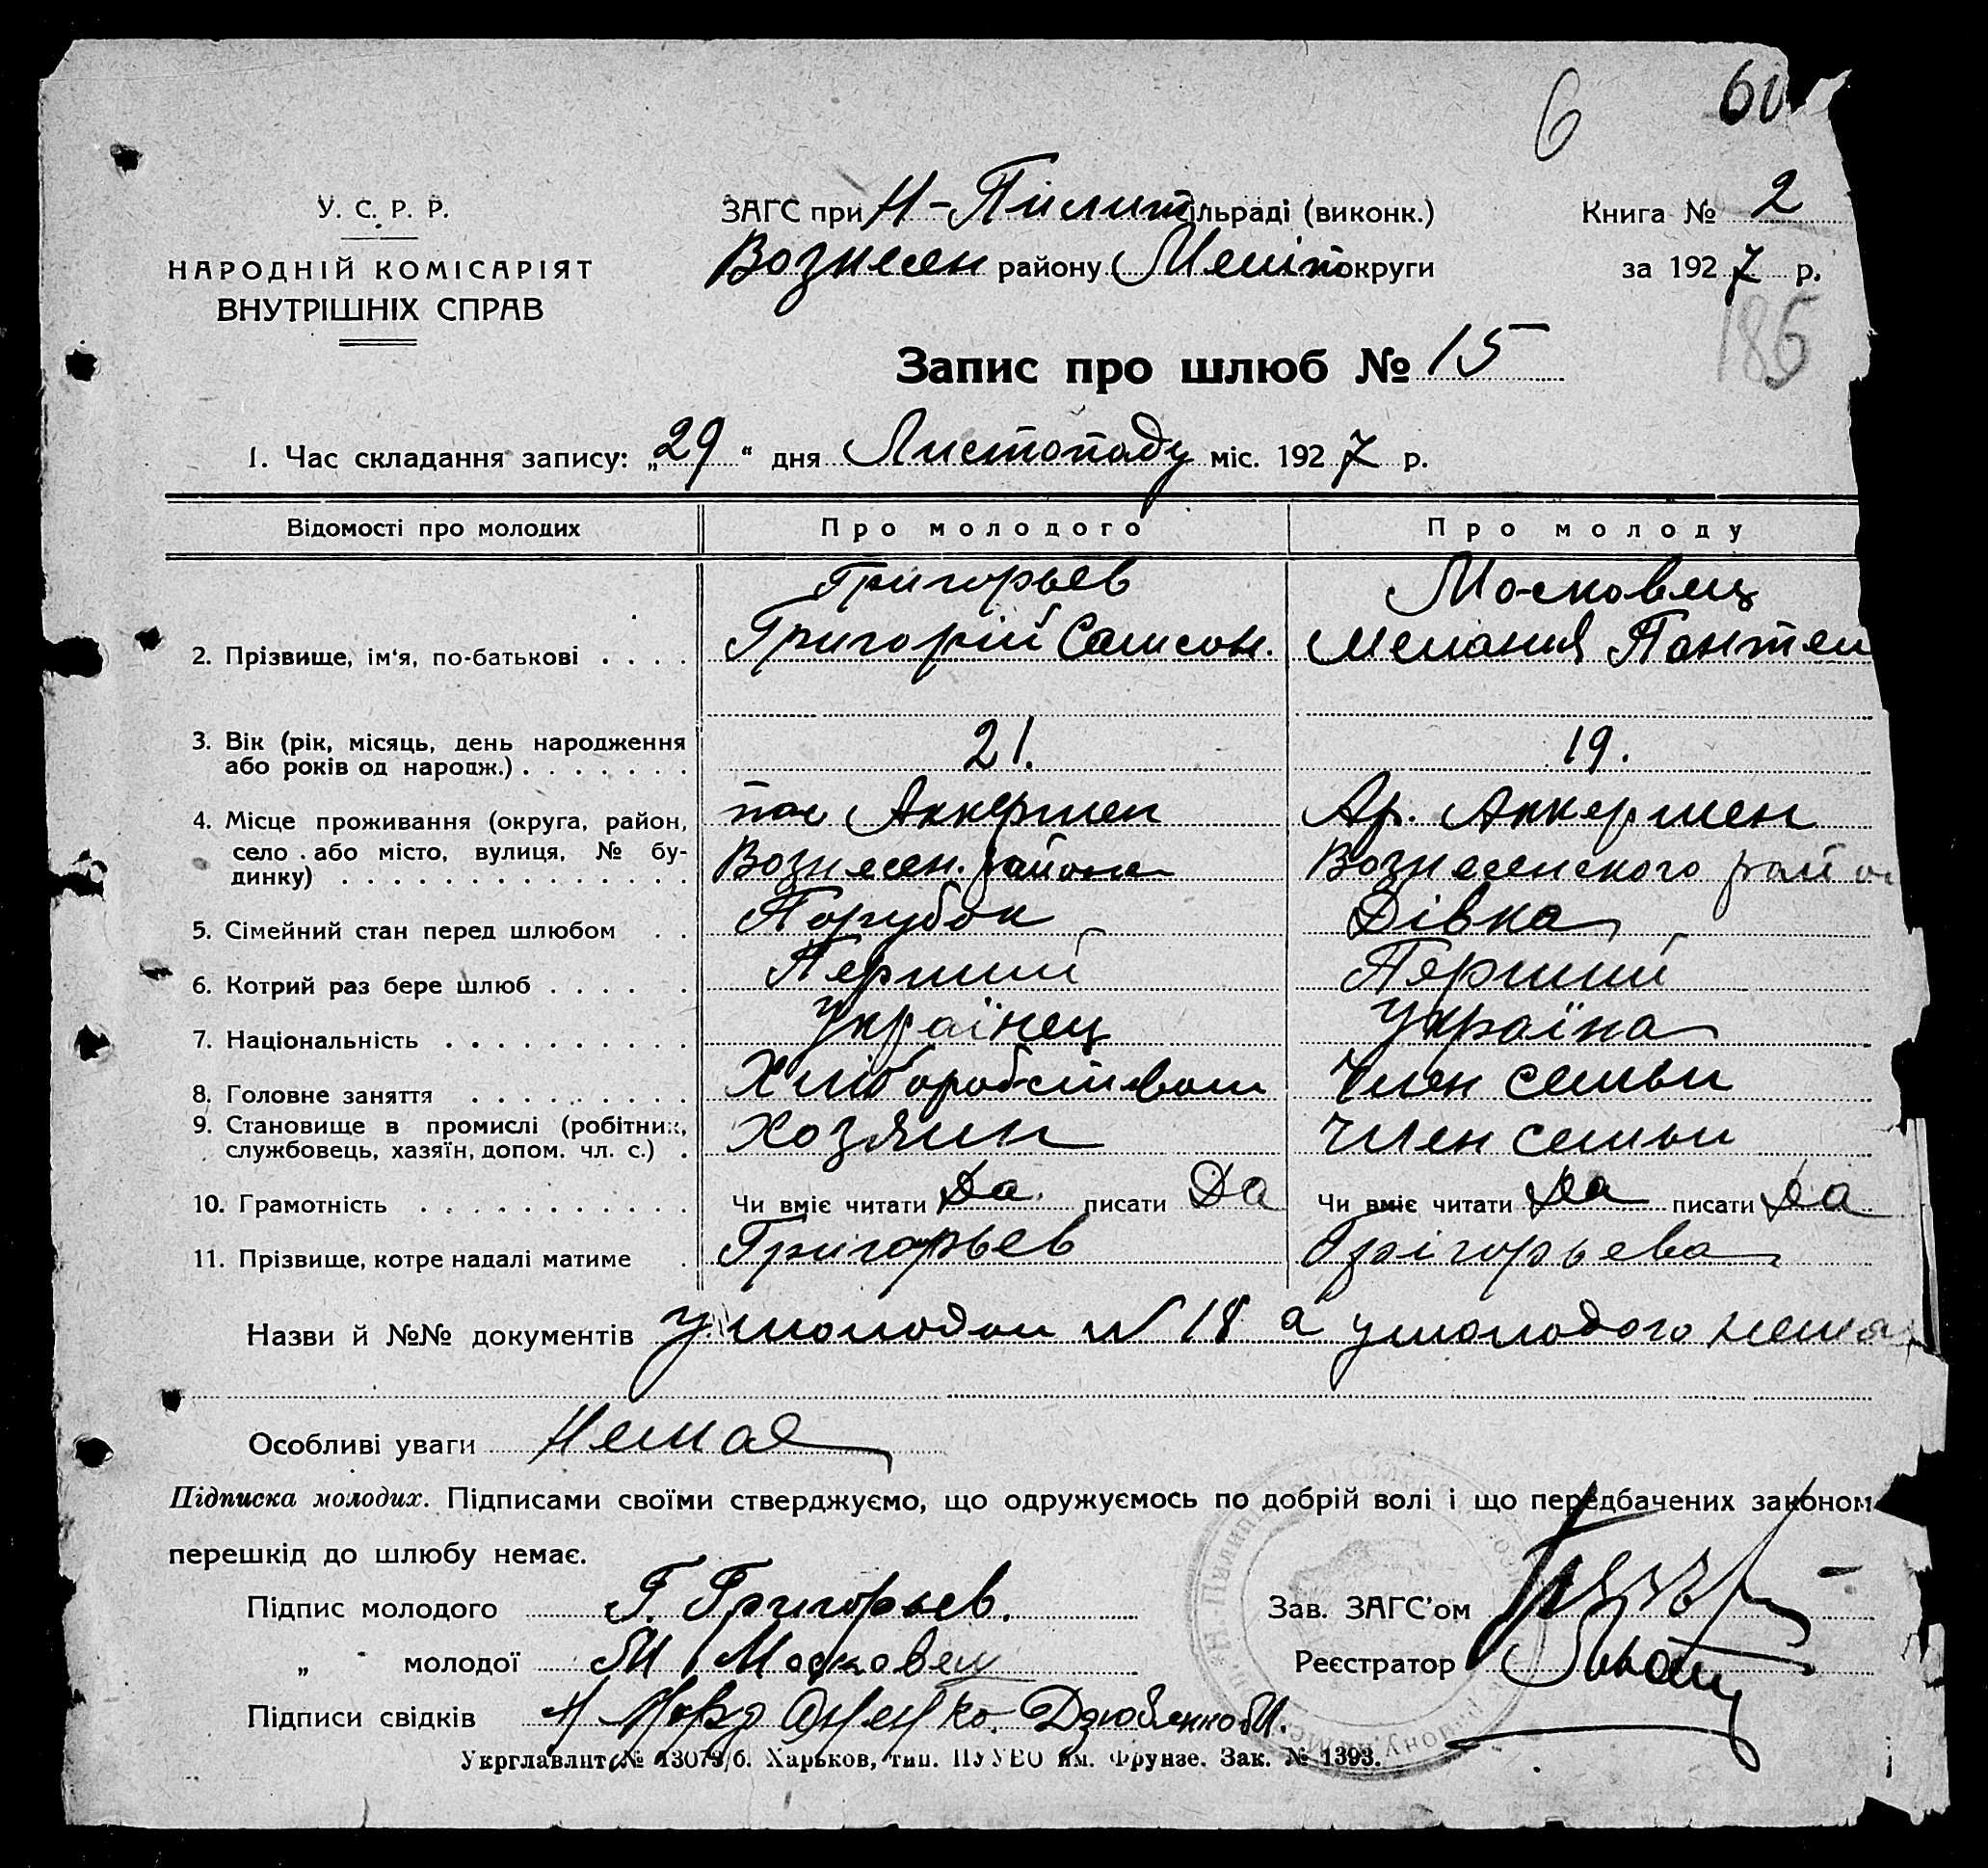 6 60
У. С. Р. Р.
НАРОДНІЙ КОМІСАРІЯТ
ВНУТРІШНІХ СПРАВ
ЗАГС при Н-Пилип сільраді (виконк.)
Вознесен району Меліт округи
Книга № 2
за 1927 р.
186
Запис про шлюб № 15
1. Час складання запису: „29“ дня Листопаду міс. 1927 р.
Відомості про молодих Про молодого Про молоду
Григорьев Московец
2. Прізвище, ім‘я, по-батькові . . . . Григорій Самсон. Мелания Пантел
3. Вік (рік, місяць, день народження
або років од народж.) . . . . . . . 21. 19.
4. Місце проживання (округа, район, пос Аккермен Ар. Аккермен
село або місто, вулиця, № бу- Вознесен. района Вознесенского райо
динку) . . . . . . . . . . . . . . .
5. Сімейний стан перед шлюбом . . Парубок Дівка
6. Котрий раз бере шлюб . . . . . Перший Перший
7. Національність . . . . . . . . . . Українец Україна
8. Головне заняття . . . . . . . . . Хліборобством Член семьи
9. Становище в промислі (робітник,
службовець, хазяїн, допом. чл. с.) . Хозяин Член семьи
10. Грамотність . . . . . . . . . . . Чи вміє читати Да. писати Да Чи вміє читати Да писати Да
11. Прізвище, котре надалі матиме . Григорьев Грігорьева
Назви й №№ документів у молодои № 18 а у молодого нема
Особливі уваги Немае
Підписка молодих. Підписами своїми стверджуємо, що одружуємось по добрій волі і що передбачених законом
перешкід до шлюбу немає.
Підпис молодого Г. Григорьев. Зав. ЗАГС’ом
„ молодої М Московец Реєстратор
Підписи свідків Дзюбенко И.
Укрглавлит № 13073/б. Харьков, тип. ПУУВО им. Фрунзе. Зак. № 1393.